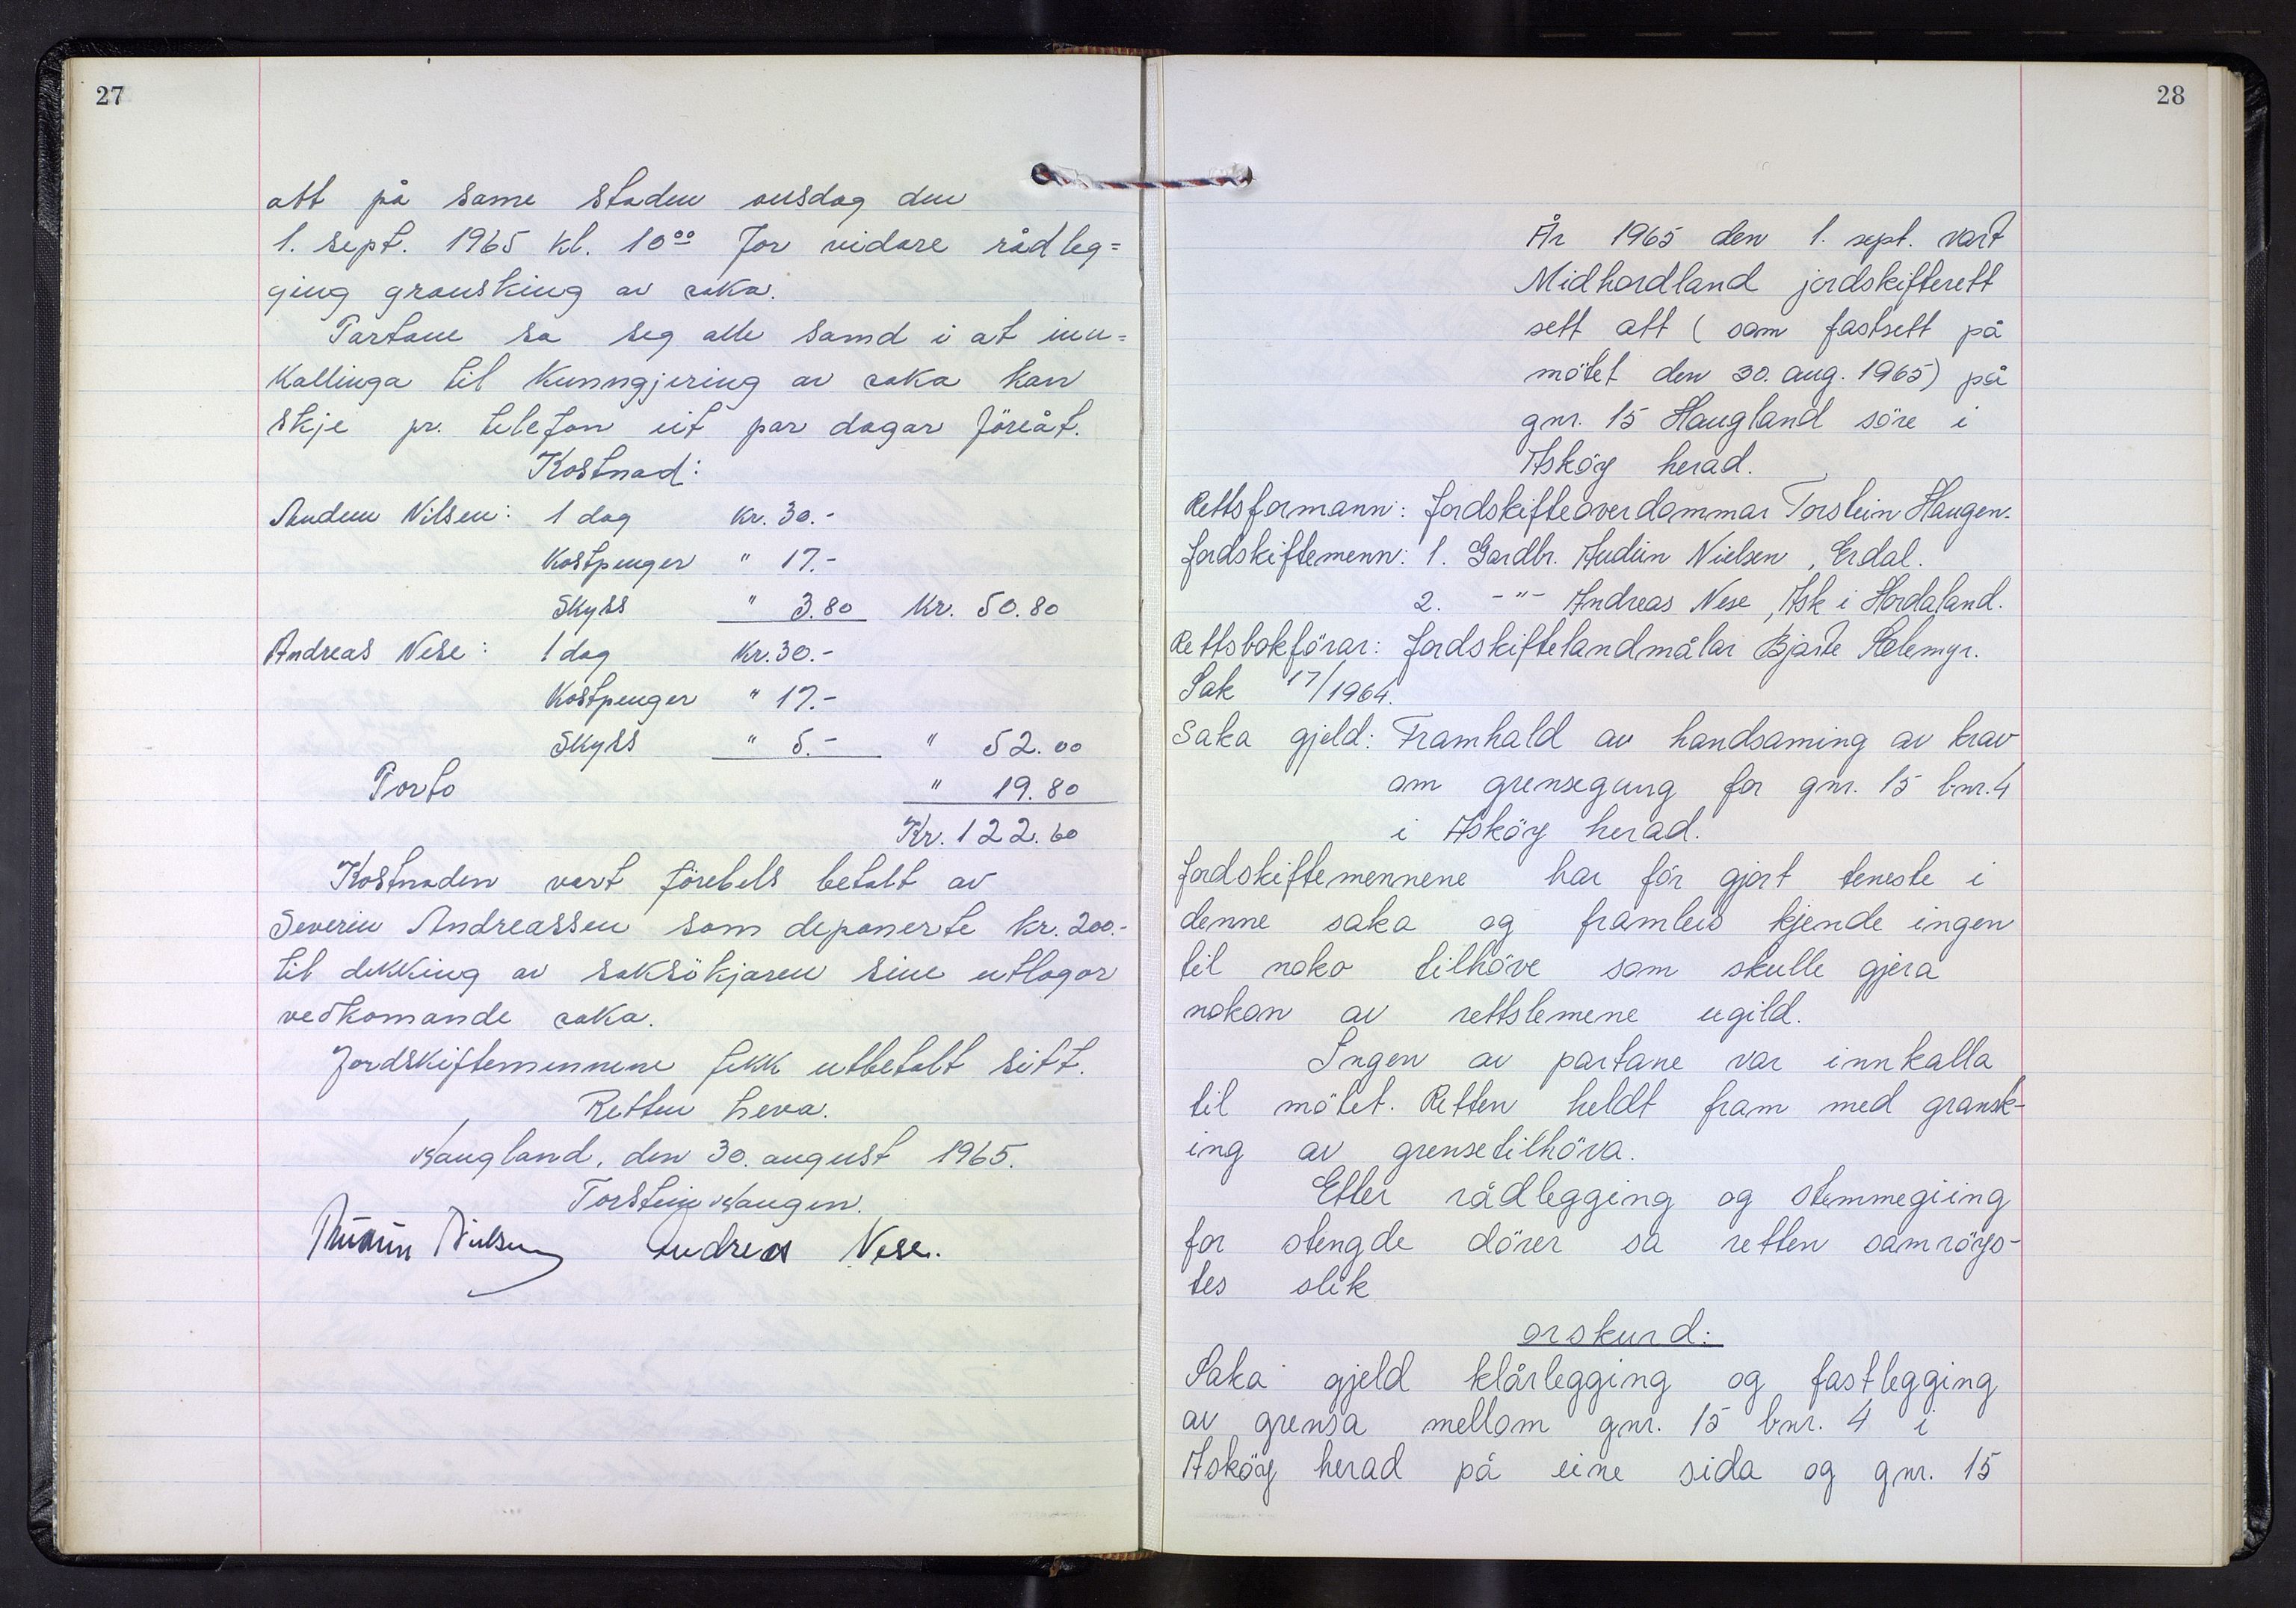 27
att på same staden onsdag den
1. sept. 1965 kl. 10⁰⁰ for vidare rådleg=
ging gransking av saka.
Partane sa seg alle samd i at inn=
kallinga til kunngjering av saka kan
skje pr. telefon eit par dagar föreåt.
Kostnad:
Audun Nilsen: 1 dag kr. 30.-
Kostpenger " 17.-
Skyss " 3.80 kr. 50.80
Andreas Nese: 1 dag kr. 30.-
Kostpenger " 17.-
Skyss " 5.- " 52.00
Porto " 19.80
Kr. 122.60
Kostnaden vart förebels betalt av
Severin Andreassen som deponerte kr. 200.-
til dekking av saksökjaren sine utlagor
vedkomande saka.
Jordskiftemennene fekk utbetalt sitt.
Retten heva.
Haugland, den 30. august 1965.
Torstein Haugen.
Audun Nielsen Andreas Nese.
28
År 1965 den 1. sept. vart
Midhordland jordskifterett
sett att (som fastsett på
mötet den 30. aug. 1965) på
gnr. 15 Haugland söre i
Asköy herad.
Rettsformann: Jordskifteoverdommar Torstein Haugen.
Jordskiftemenn: 1. Gardbr. Audun Nielsen, Erdal.
2. -"- Andreas Nese, Ask i Hordaland.
Rettsbokförar: Jordskiftelandmålar Bjarte Holemyr.
Sak 17/1964.
Saka gjeld: Framhald av handsaming av krav
om grensegang for gnr. 15 bnr. 4
i Asköy herad.
Jordskiftemennene har för gjort teneste i
denne saka og framleis kjende ingen
til noko tilhöve som skulle gjera
nokon av rettslemene ugild.
Ingen av partane var innkalla
til mötet. Retten heldt fram med gransk-
ing av grensetilhöva.
Etter rådlegging og stemmegiing
for stengde dörer sa retten samröys-
tes slik
orskurd:
Saka gjeld klårlegging og fastlegging
av grensa mellom gnr. 15 bnr. 4 i
Asköy herad på eine sida og gnr. 15